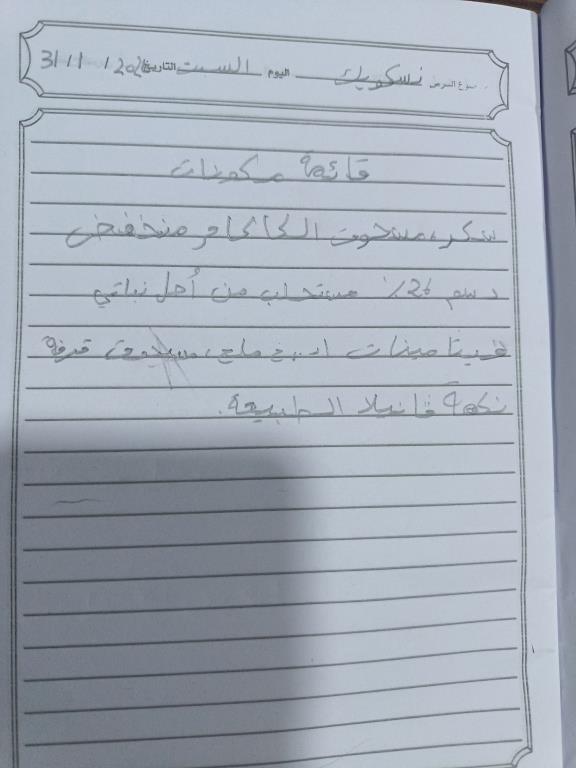 نسكويك اليوم السبت التاريخ 31/1/202
قائمة مكونات
سكر، مسحوق الكاكاو منخفض
دسم 26٪ مستحلب من أصل نباتي
فيتامينات ملح، مسحوق قرفة
نكهة ڤانيلا الطبيعية.